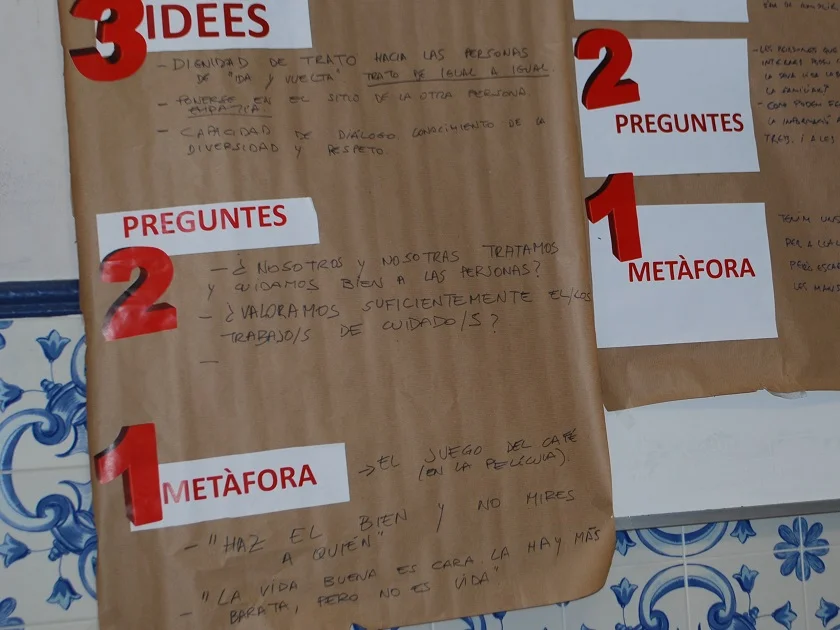 3 IDEES
- DIGNIDAD DE TRATO HACIA LAS PERSONAS
DE "IDA Y VUELTA" TRATO DE IGUAL A IGUAL.
- PONERSE EN EL SITIO DE LA OTRA PERSONA.
EMPATÍA.
- CAPACIDAD DE DIÁLOGO, CONOCIMIENTO DE LA
DIVERSIDAD Y RESPETO.
PREGUNTES
2
- ¿NOSOTROS Y NOSOTRAS TRATAMOS
Y CUIDAMOS BIEN A LAS PERSONAS?
- ¿VALORAMOS SUFICIENTEMENTE EL/LOS
TRABAJO/S DE CUIDADO/S?
-
1 METÀFORA
→ EL JUEGO DEL CAFÉ
(EN LA PELÍCULA).
- "HAZ EL BIEN Y NO MIRES
A QUIÉN"
- "LA VIDA BUENA ES CARA. LA HAY MÁS
BARATA, PERO NO ES VIDA"
2
PREGUNTES
- LES PERSONES QUE
LA
1
METÀFORA
TENIM UNS
PER A
PERÒ
LES MANS